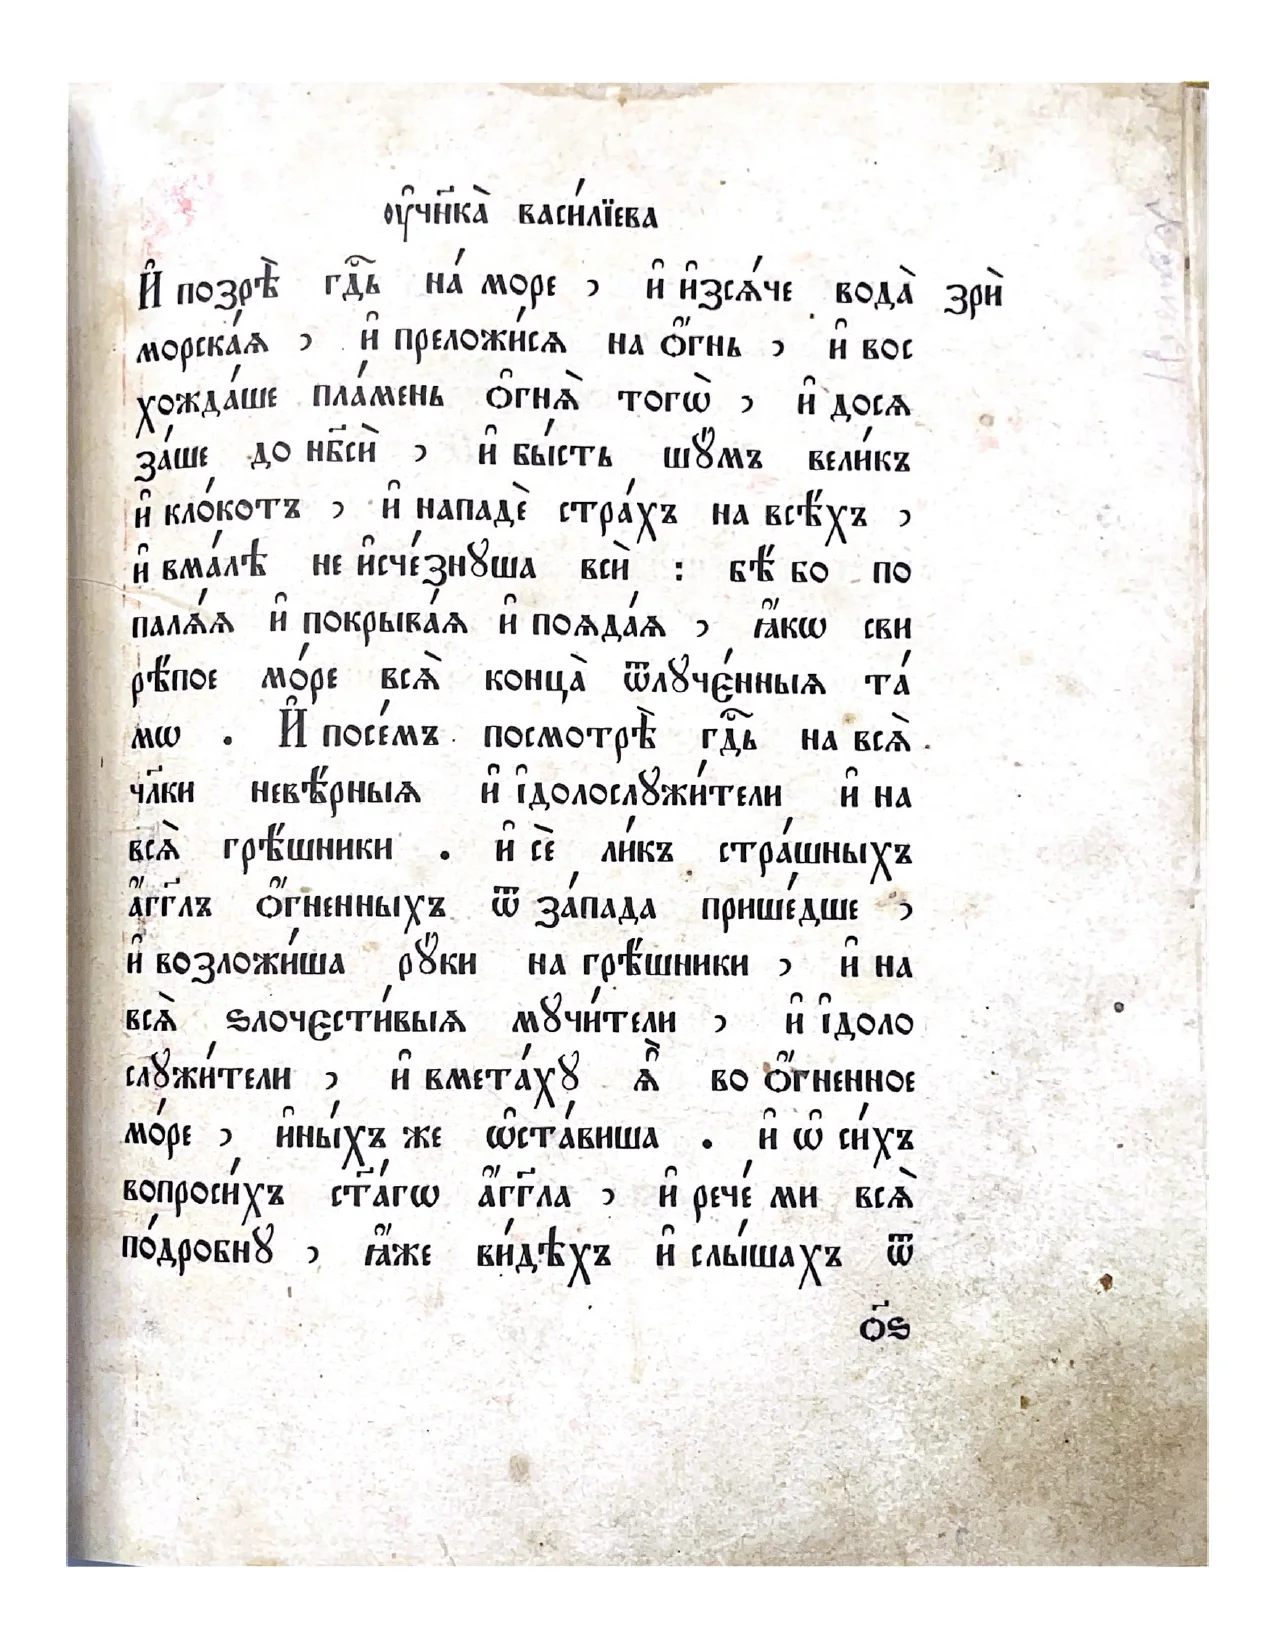 ᲂу҆чн҃ка̀ васи́лїева
И҆ позрѣ̀ гдⷭ҇ь на́ море , и҆ и҆зсѧ́че вода̀ зрѝ
морска́ѧ , и҆ преложи́сѧ на ѻ҆́гнь , и҆ вос
хожда́ше пла́мень ѻ҆гнѧ̀ тогѡ̀ , и҆ досѧ
за́ше до нб҃сѝ , и҆ бы́сть шꙋ́мъ вели́къ
и҆ кло́котъ , и҆ нападѐ стра́хъ на всѣ́хъ ,
и҆ вма́лѣ не и҆сче́знꙋша всѝ : бѣ́ бо по
палѧ́ѧ и҆ покрыва́ѧ и҆ поѧда́ѧ , ꙗ҆́кѡ сви
рѣ́пое мо́ре всѧ̀ конца̀ ѿлꙋчє́нныѧ та́
мѡ . И҆ посе́мъ посмотрѣ̀ гдⷭ҇ь на всѧ̀
чл҃ки невѣ́рныѧ и҆ і҆долослꙋжи́тели и҆ на
всѧ̀ грѣ́шники . и҆ сѐ ли́къ стра́шныхъ
а҆́гг҃лъ ѻ҆́гненныхъ ѿ за́пада прише́дше ,
и҆ возложи́ша рꙋ́ки на грѣ́шники , и҆ на
всѧ̀ ѕлочєсти́выѧ мꙋчи́тели , и҆ і҆доло
слꙋжи́тели , и҆ вмета́хꙋ ѧ҆̀ во ѻ҆́гненное
мо́ре , и҆ны́хъ же ѡ҆ста́виша . и҆ ѡ҆ си́хъ
вопроси́хъ ст҃а́гѡ а҆́гг҃ла , и҆ рече́ ми всѧ̀
по́дробнꙋ , ꙗ҆́же ви́дѣхъ и҆ слы́шахъ ѿ
ѻ҃ѕ